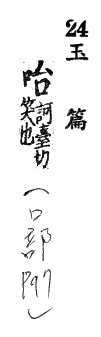 24 玉篇
咍 訶臺切笑也（口部 P97）